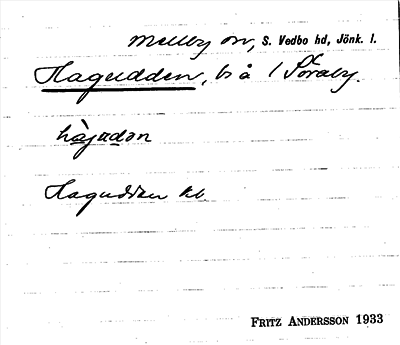 Mellby sn, S. Vedbo hd, Jönk. l.
Hagudden, bs å 1 Söraby.
hàgudən
Hagudden kb
FRITZ ANDERSSON 1933